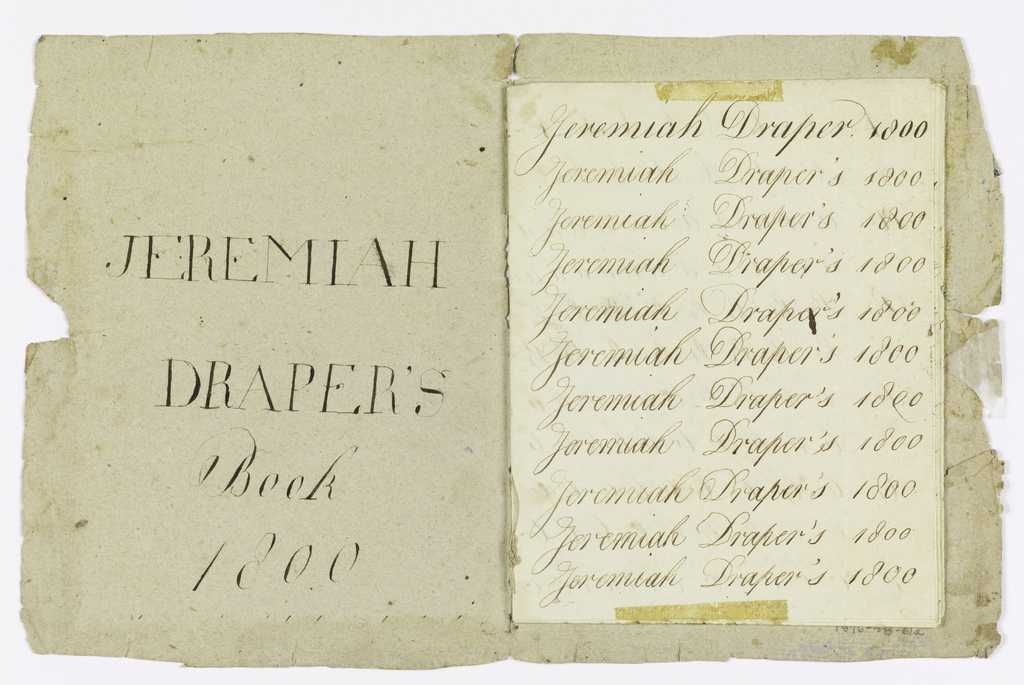 JEREMIAH
DRAPER'S
Book
1800
Jeremiah Draper. 1800
Jeremiah Draper's 1800
Jeremiah Draper's 1800
Jeremiah Draper's 1800
Jeremiah Draper's 1800
Jeremiah Draper's 1800
Jeremiah Draper's 1800
Jeremiah Draper's 1800
Jeremiah Draper's 1800
Jeremiah Draper's 1800
Jeremiah Draper's 1800